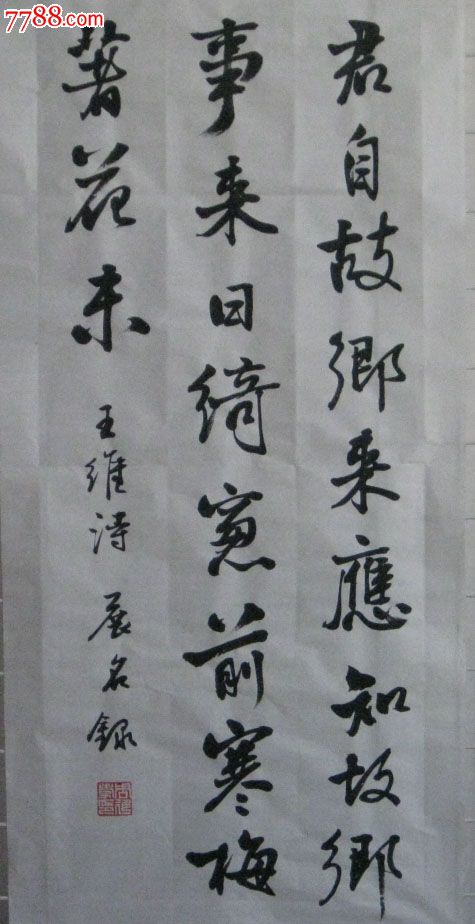 7788.com
君自故鄉来應知故鄉
事来日綺窻前寒梅
著花未
王維詩 展名録